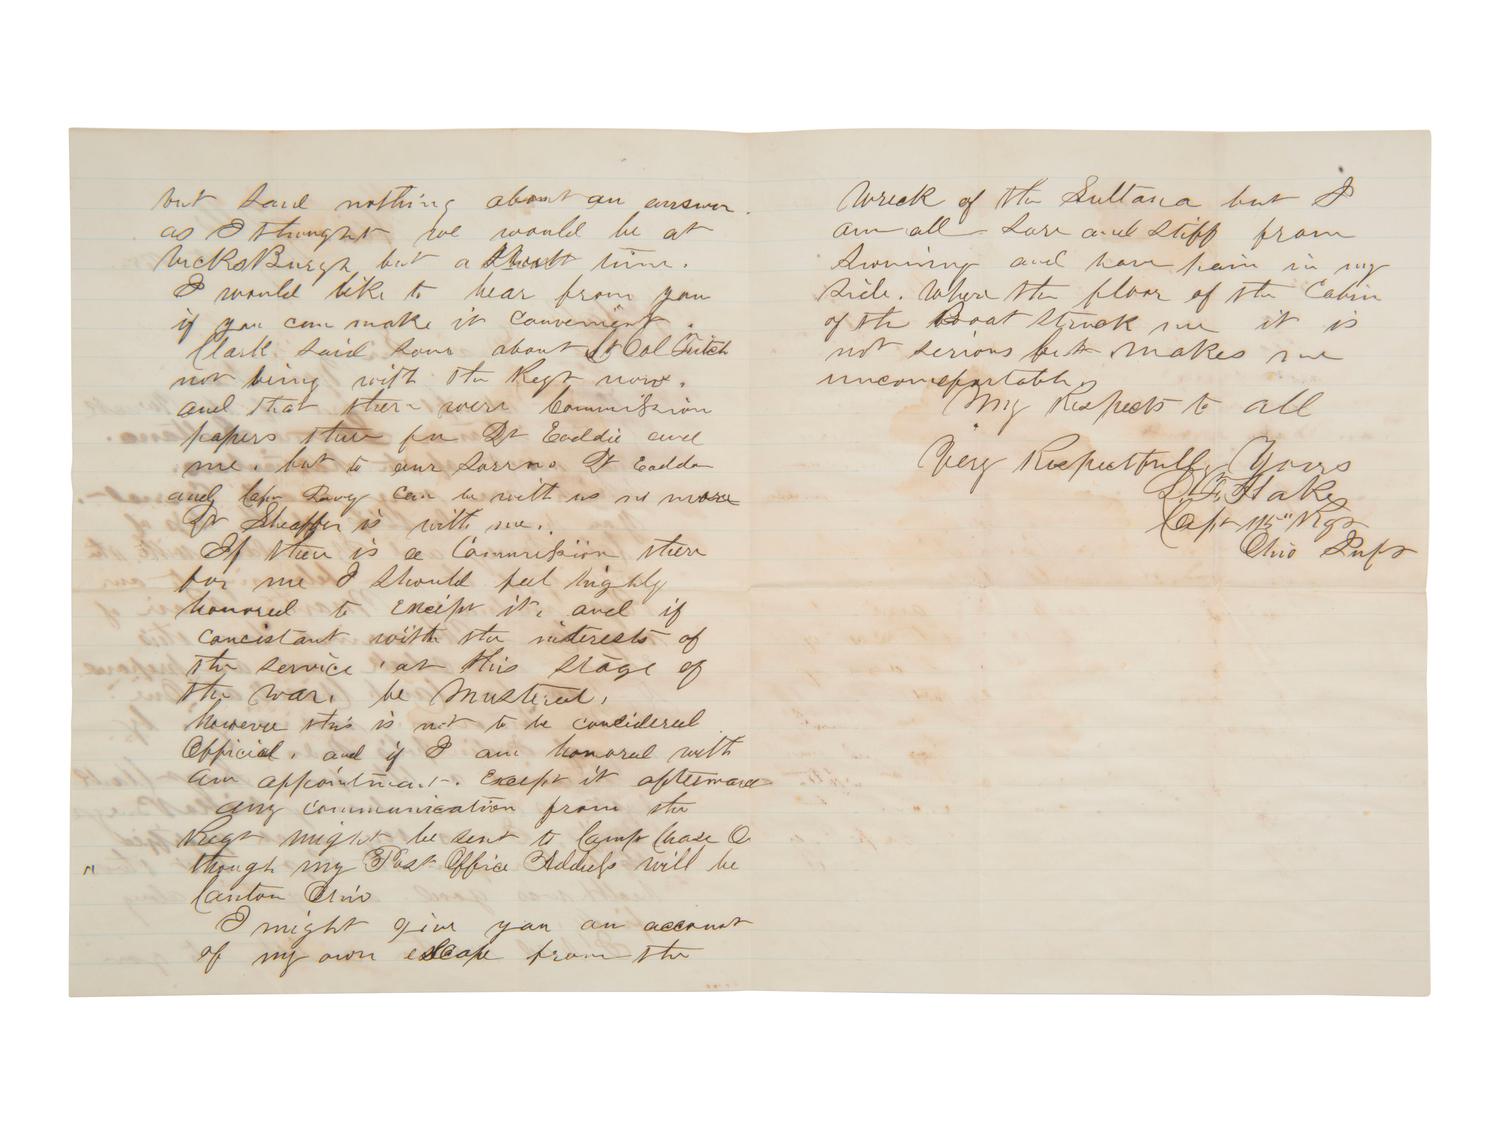 but said nothing about an answer.
as I thought we would be at
VicksBurgh but a Short time.
I would like to hear from you
if you can make it convenient.
Clark said some about Lt Col Fitch
not being with the Regt now.
and that there were Commission
papers there for Lt Eaddie and
me. but to our sorrow Lt Eadda
and Capt can be with us no more
Lt Sheaffer is with me.
If there is a Commission there
for me I should feel highly
honored to Except it, and if
concistant with the interests of
the service, at this stage of
the war, be Mustered,
however this is not to be concidered
Official, and if I am honored with
am appointment. Except it afterward
any communication from the
Regt might be sent to Camp Chase O
though my Post Office Address will be
Canton Ohio
I might give you an account
of my own escape from the
Wreck of the Sultana but I
am all sore and stiff from
Swiming and have pain in my
side. Where the floor of the Cabin
of the Boat struck me it is
not serious but makes me
uncomfortable.
My Respects to all
Very Respectfully Yours
Hake
Capt 115" Regt
Ohio Inft